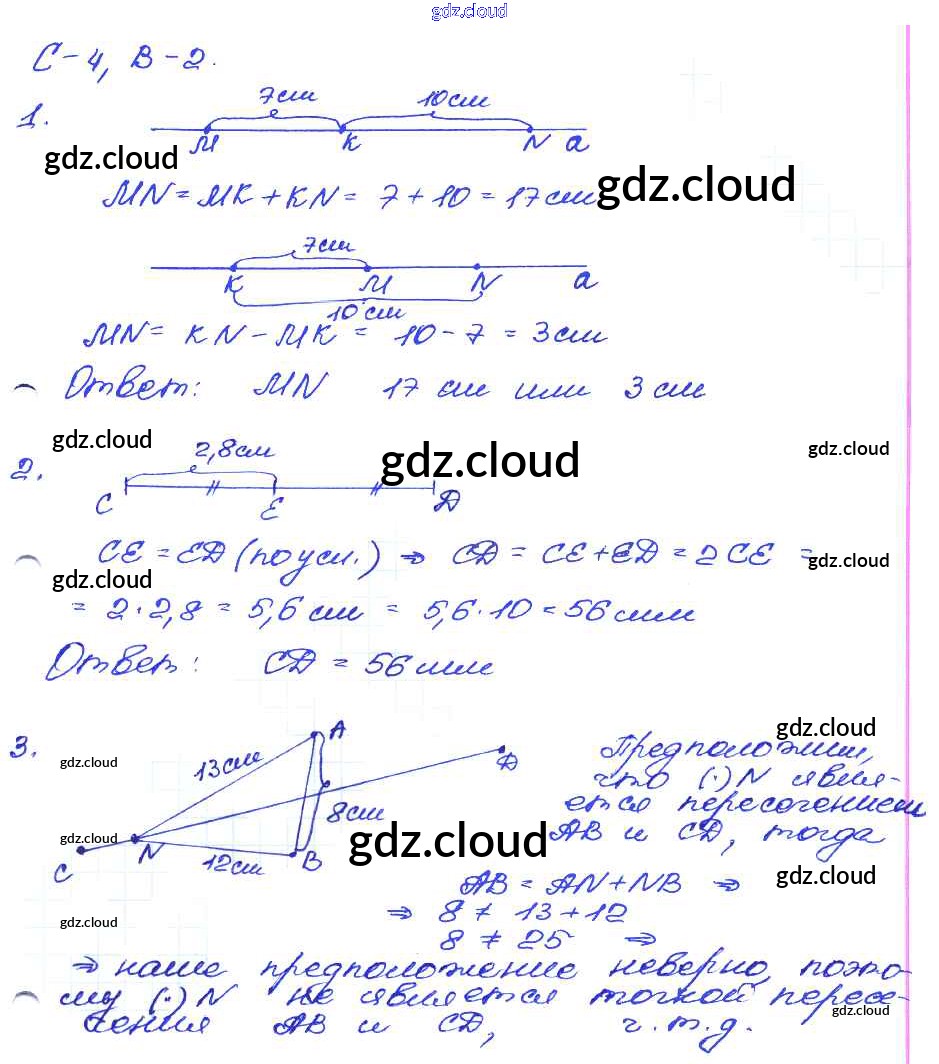 gdz.cloud
С-4, В-2.
1.
7см 10см
М К N a
gdz.cloud
MN = MK + KN = 7 + 10 = 17 см
gdz.cloud
7см
К М N a
10 см
MN = KN - MK = 10 - 7 = 3 см
Ответ: MN 17 см или 3 см
gdz.cloud gdz.cloud gdz.cloud
2.
2,8см
C E D
CE = ED (по усл.) ⇒ CD = CE + ED = 2 CE =
gdz.cloud gdz.cloud
= 2 · 2,8 = 5,6 см = 5,6 · 10 = 56 мм
Ответ: CD = 56 мм
3.
gdz.cloud gdz.cloud
A
13см
D
8см
C N 12см B
gdz.cloud gdz.cloud gdz.cloud
Предположим,
что (·) N явля-
ется пересечением
AB и CD, тогда
AB = AN + NB ⇒
⇒ 8 ≠ 13 + 12
8 ≠ 25 ⇒
gdz.cloud
⇒ наше предположение неверно, поэто-
му (·) N не является точкой пересе-
чения AB и CD, ч.т.д.
gdz.cloud